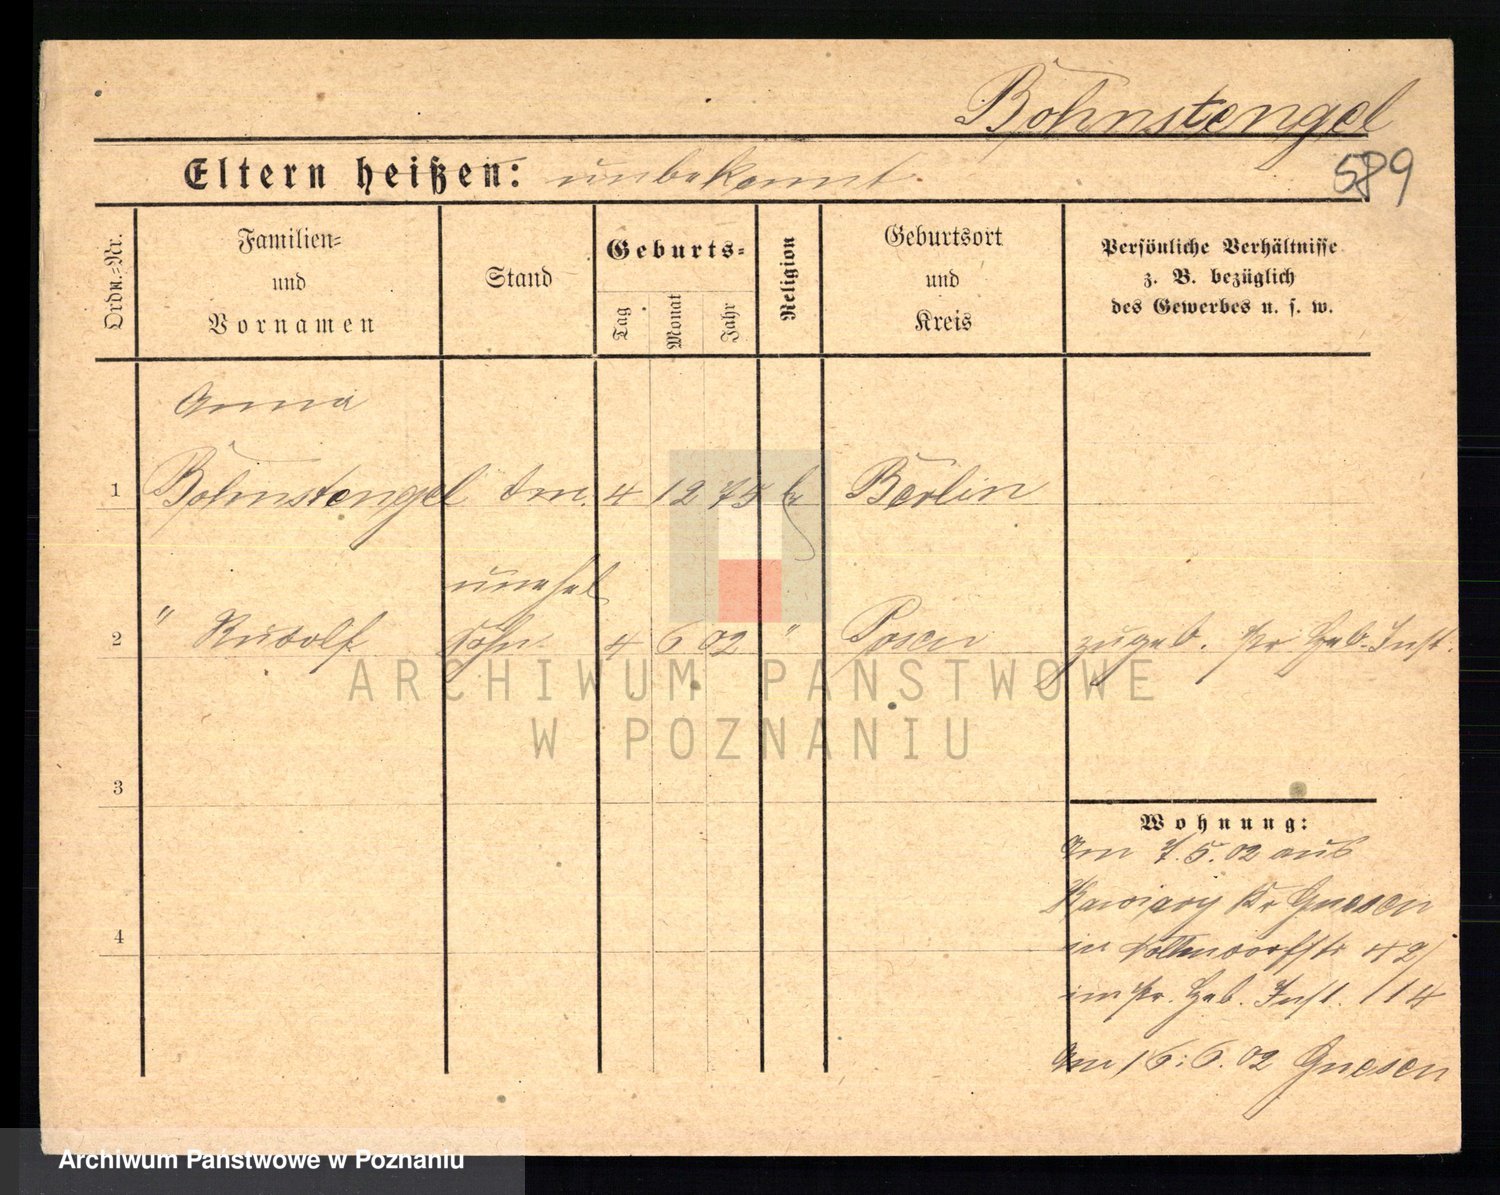 Bohnstengel
Eltern heißen: unbekannt.
589
Ordn.-Nr.
Familien-
und
Vornamen
Stand
Geburts-
Tag
Monat
Jahr
Religion
Geburtsort
und
Kreis
Persönliche Verhältnisse
z. B. bezüglich
des Gewerbes u. s. w.
Anna
1 Bohnstengel 4 12 75 Berlin
unehel
2 " Rudolf Sohn 4 6 02 " Posen zugeb. Pr. Heb. Inst.
3
4
Wohnung:
Am 7.5.02 aus
Kr Gnesen
in 42/
im Pr. Heb. Inst. 114
Am 16.6.02 Gnesen
ARCHIWUM PAŃSTWOWE
W POZNANIU
Archiwum Państwowe w Poznaniu